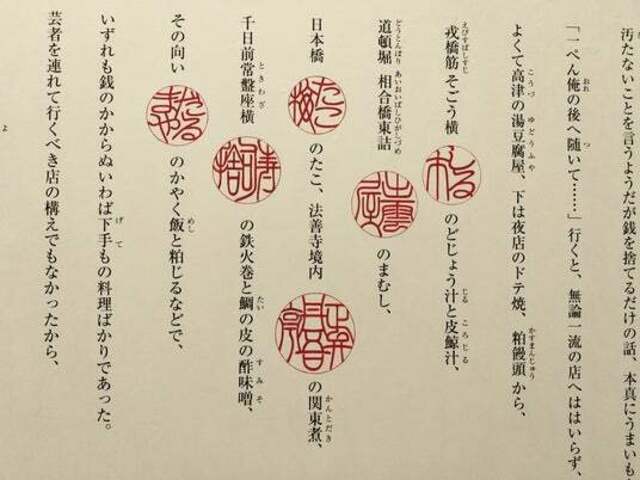 汚たないことを言うようだが銭を捨てるだけの話、本真にうまいも
「一ぺん俺の後へ随いて……」行くと、無論一流の店へははいらず、
よくて高津の湯豆腐屋、下は夜店のドテ焼、粕饅頭から、
戎橋筋そごう横 しる市 のどじょう汁と皮鯨汁、
道頓堀 相合橋東詰 出雲屋 のまむし、
日本橋 たこ梅 のたこ、法善寺境内 正弁丹吾亭 の関東煮、
千日前常盤座横 寿司捨 の鉄火巻と鯛の皮の酢味噌、
その向い だるまや のかやく飯と粕じるなどで、
いずれも銭のかからぬいわば下手もの料理ばかりであった。
芸者を連れて行くべき店の構えでもなかったから、